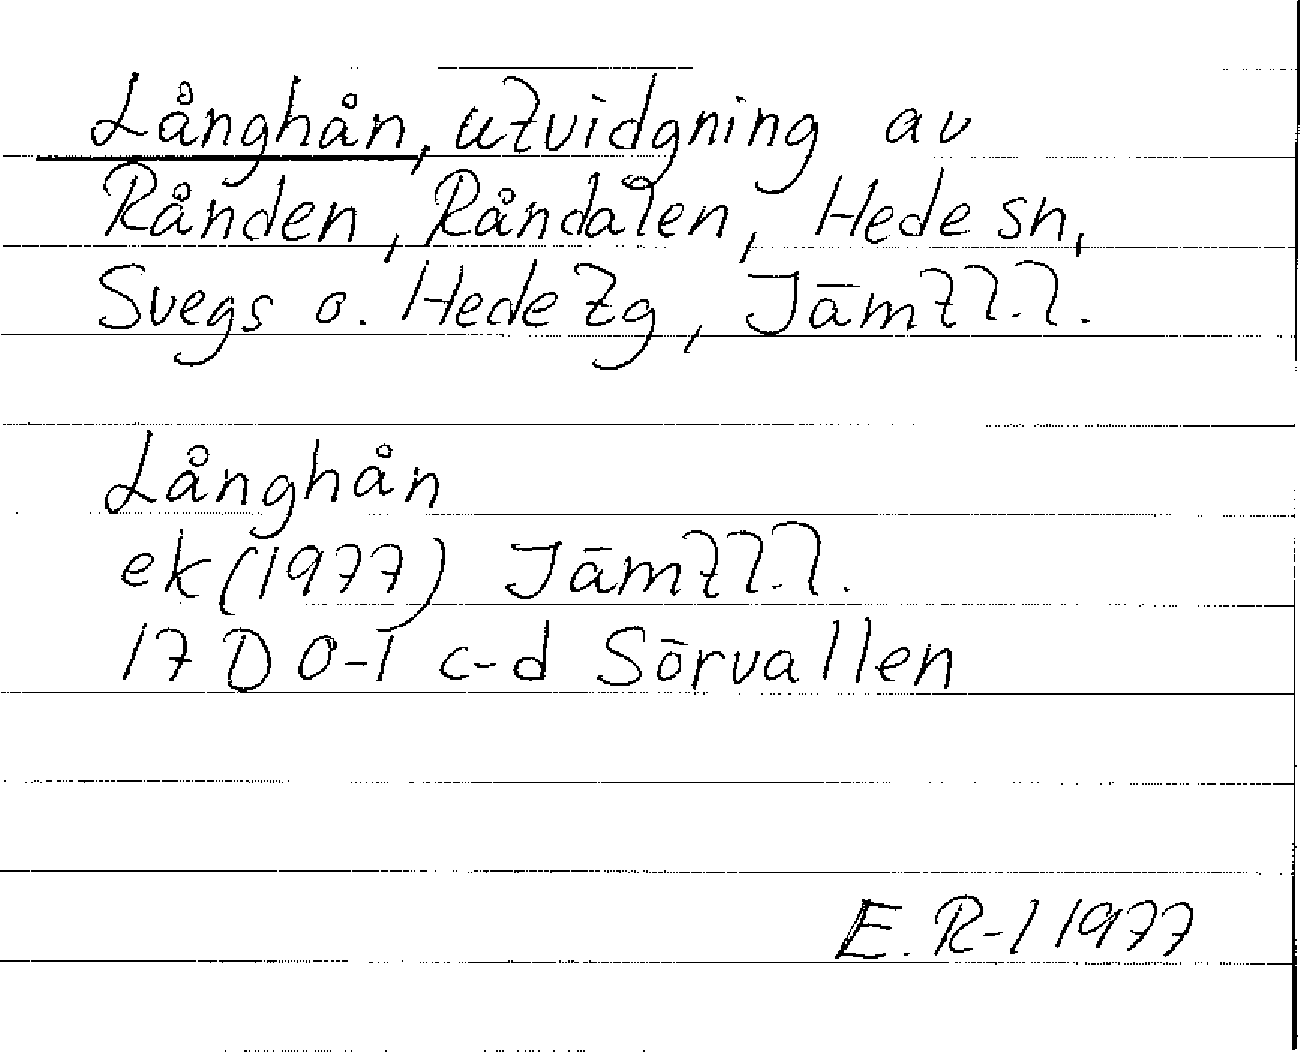 Långhån, utvidgning av
Rånden, Råndålen, Hede sn,
Svegs o. Hede tg, Jämtl.l.
Långhån
ek (1977) Jämtl.l.
17 D 0-1 c-d Sörvallen
E. R-l 1977